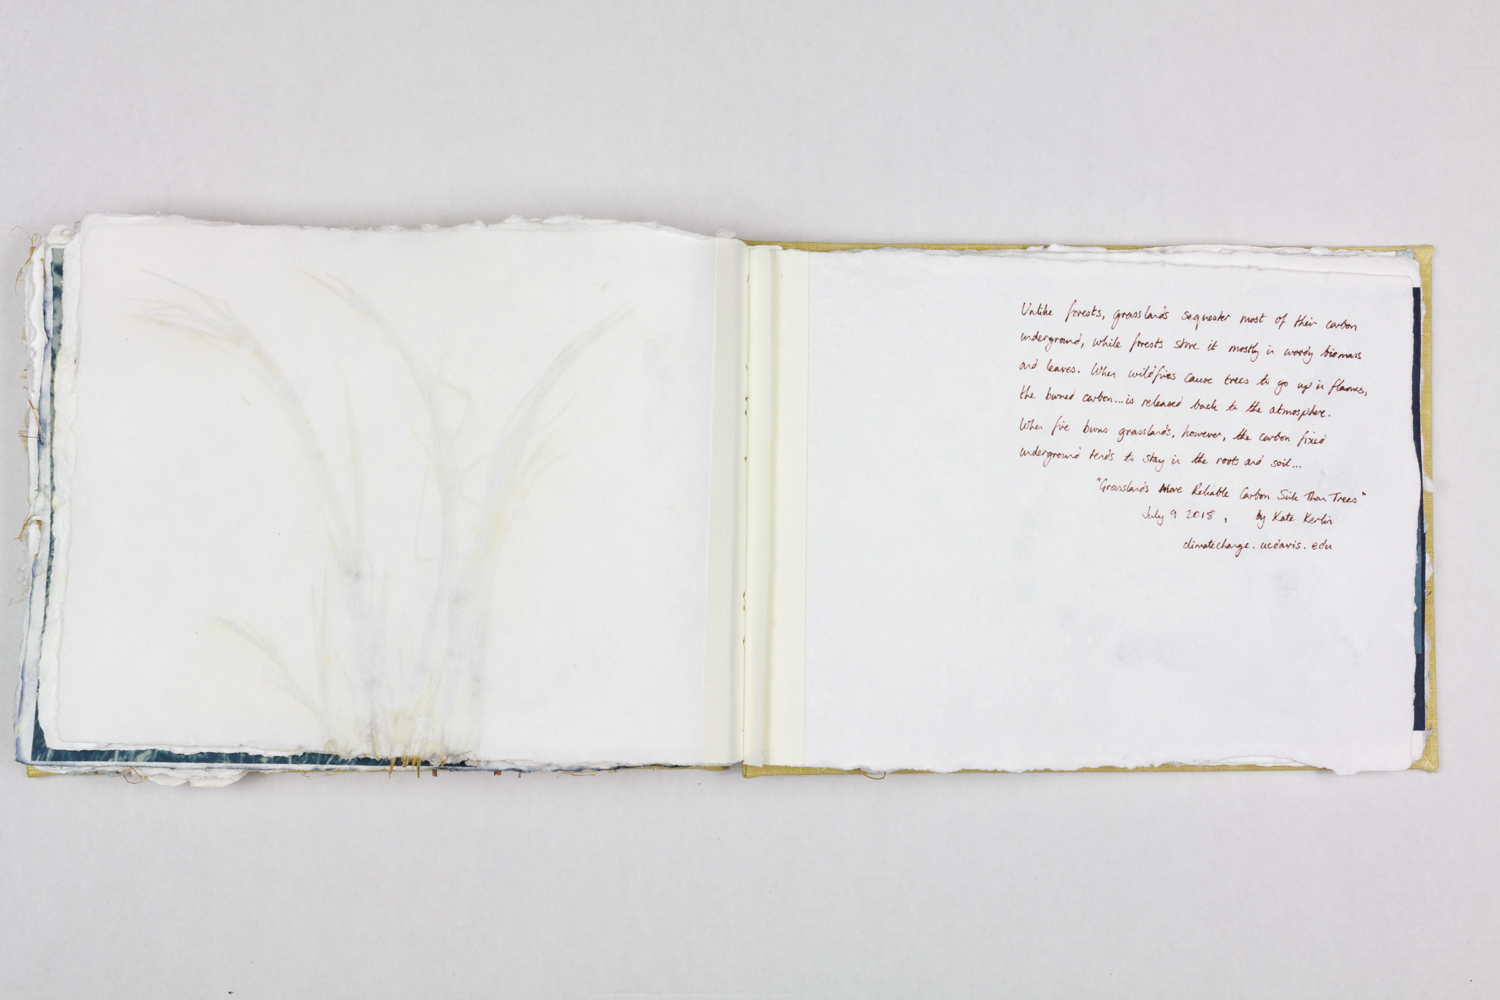 Unlike forests, grasslands sequester most of their carbon
underground, while forests store it mostly in woody biomass
and leaves. When wildfires cause trees to go up in flames,
the burned carbon...is released back to the atmosphere.
When fire burns grasslands, however, the carbon fixed
underground tends to stay in the roots and soil...
"Grasslands More Reliable Carbon Sink Than Trees"
July 9 2018, by Kate Kerlin
climatechange.ucdavis.edu